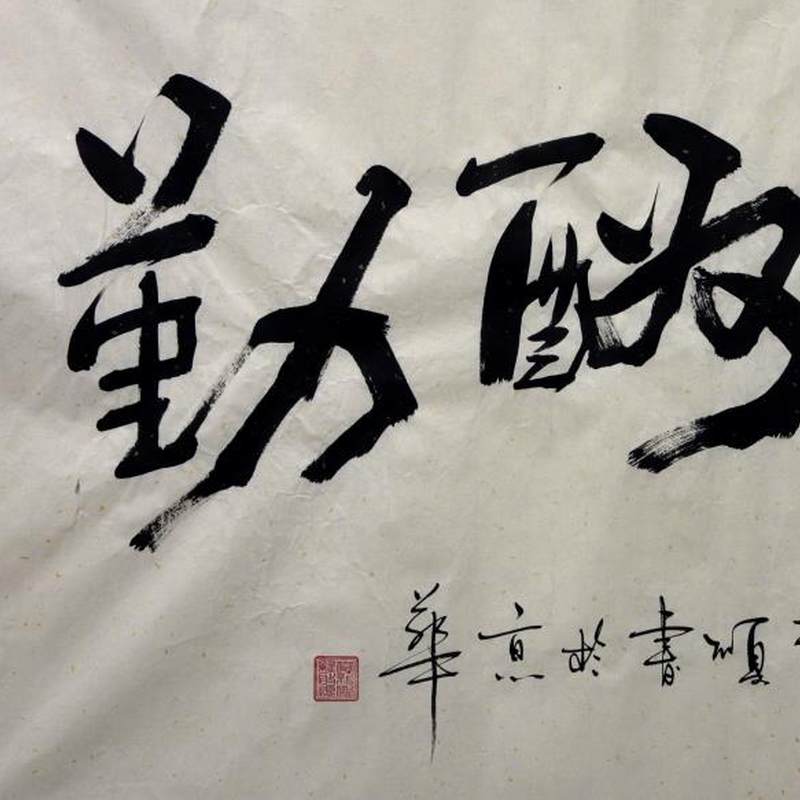 酬勤
順書於京華